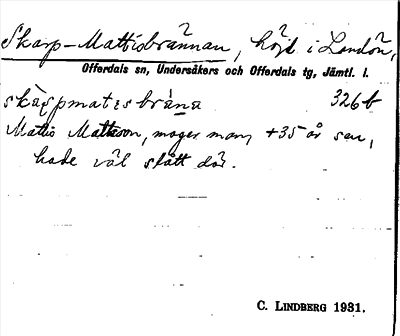 Skarp-Mattisbrännan, höjd i Landön,
Offerdals sn, Undersåkers och Offerdals tg, Jämtl. l.
skàrpmatɩsbrána 326b
Mattis Mattsson, mager man, +35 år sen,
hade väl slått där.
C. LINDBERG 1931.